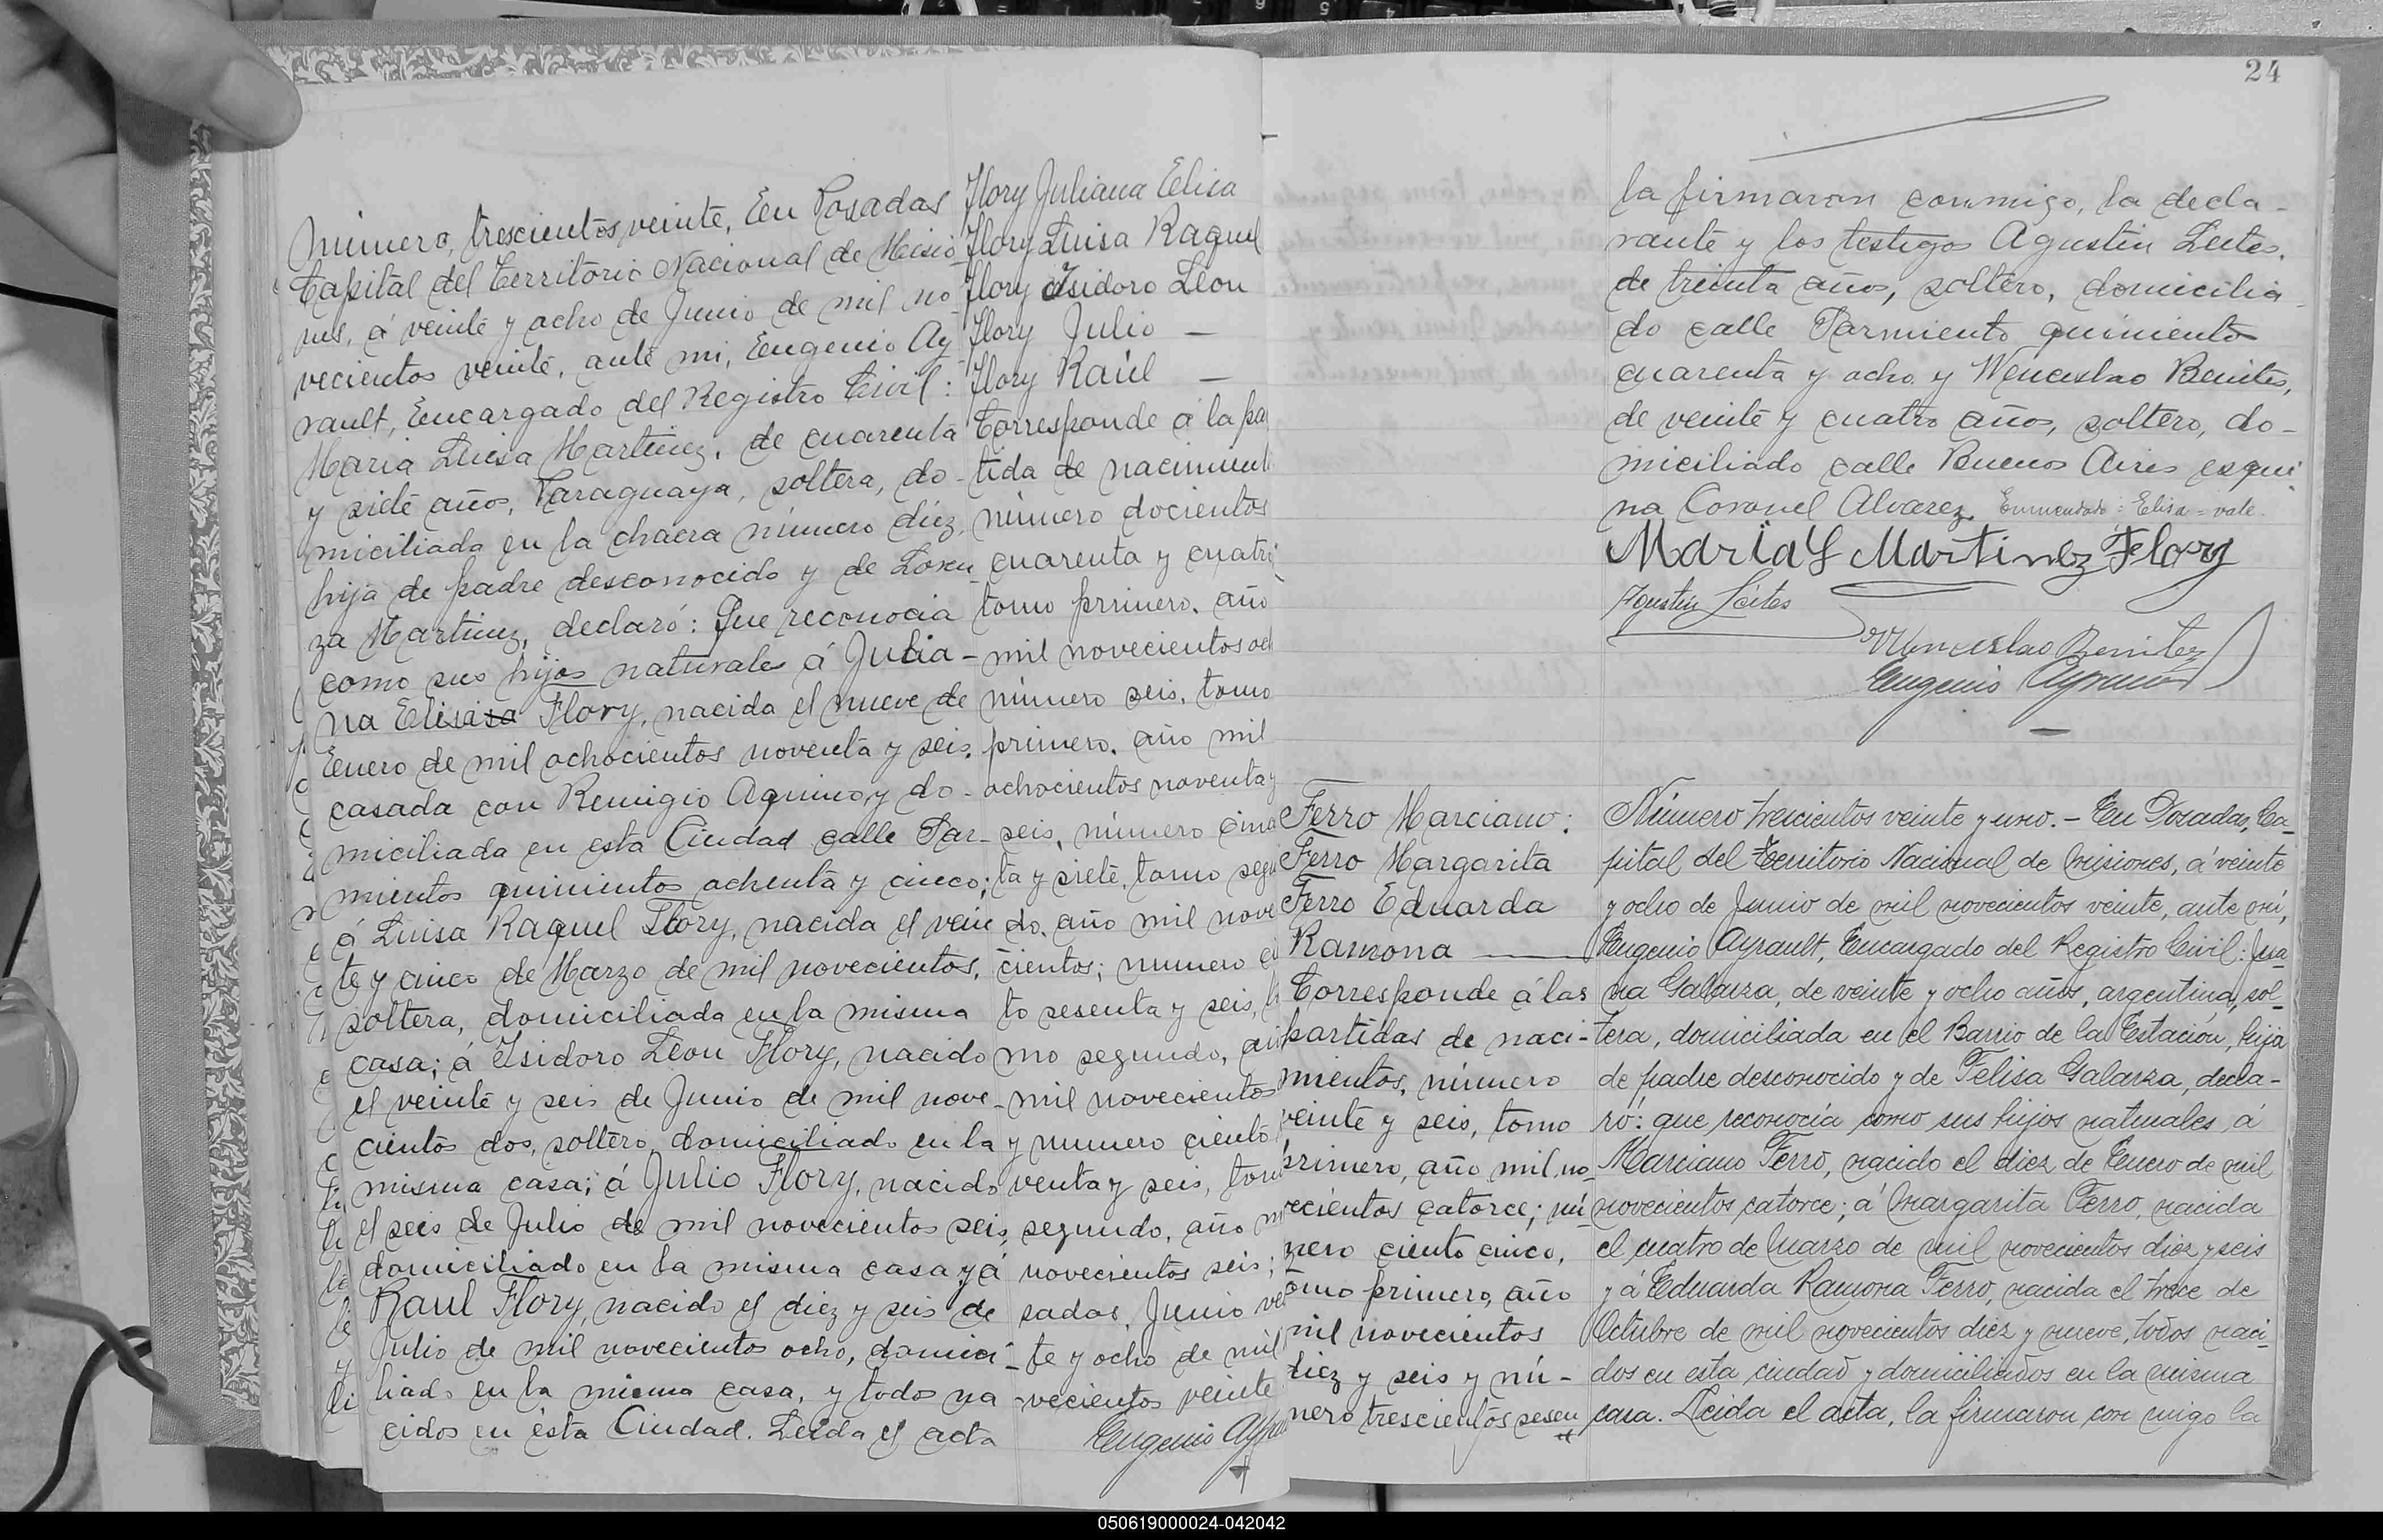 Número, trescientos veinte, En Posadas
Capital del Territorio Nacional de Misio
nes, á veinte y ocho de Junio de mil no
vecientos veinte, ante mi, Eugenio Ay
rault, Encargado del Registro Civil:
Maria Luisa Martinez, de cuarenta
y siete años, Paraguaya, soltera, do-
miciliada en la chacra número diez,
hija de padre desconocido y de Loren
za Martinez, declaró: Que reconocia
como sus hijos naturales á Julia-
na Elisisa Flory, nacida el nueve de
Enero de mil ochocientos noventa y seis,
casada con Remigio Aquino, y do-
miciliada en esta Ciudad calle Sar-
mientos quinientos ochenta y cinco;
á Luisa Raquel Flory, nacida el vein
te y cinco de Marzo de mil novecientos,
soltera, domiciliada en la misma
casa; á Isidoro Léon Flory, nacido
el veinte y seis de Junio de mil nove-
cientos dos, soltero, domiciliado en la
misma casa; á Julio Flory, nacido
el seis de Julio de mil novecientos seis,
domiciliado en la misma casa y á
Raul Flory, nacido el diez y seis de
Julio de mil novecientos ocho, domici-
liado en la misma casa, y todos na
cidos en ésta Ciudad. Leida el acta
Flory Juliana Elisa
Flory Luisa Raquel
Flory Isidoro Léon
Flory Julio —
Flory Raúl —
Corresponde á la par
tida de nacimient
número docientos
cuarenta y cuatro
tomo primero, año
mil novecientos och
número seis, tomo
primero, año mil
ochocientos noventa y
seis, número cincu
ta y siete, tomo segu
do, año mil nove
cientos; numero ci
to sesenta y seis, to
mo segundo, añ
mil novecientos
y numero ciento
venta y seis, tom
segundo, año m
novecientos seis;
sadas, Junio ve
te y ocho de mil
vecientos veinte
Eugenio Ayrau
24
la firmaron conmigo, la decla-
rante y los testigos Agustin Leites,
de treinta años, soltero, domicilia-
do calle Sarmiento quiniento
cuarenta y ocho y Wenceslao Benites,
de veinte y cuatro años, soltero, do-
miciliado calle Buenos Aires esqui
na Coronel Alvarez. Enmendado: Elisa = vale.
Maria L Martinez Flory
Agustin Leites
Wenceslao Benitez
Eugenio Ayrault
Ferro Marciano:
Ferro Margarita
Ferro Eduarda
Ramona —
Corresponde á las
partidas de naci-
mientos, número
veinte y seis, tomo
primero, año mil no
vecientos catorce; nú
mero ciento cinco,
tomo primero, año
mil novecientos
diez y seis y nú-
mero trescientos sesen
Número trescientos veinte y uno.- En Posadas, Ca-
pital del Territorio Nacional de Misiones, á veinte
y ocho de Junio de mil novecientos veinte, ante mí,
Eugenio Ayrault, Encargado del Registro Civil: Jua-
na Galarza, de veinte y ocho años, argentina, sol-
tera, domiciliada en el Barrio de la Estación, hija
de padre desconocido y de Felisa Galarza, decla-
ró: que reconocía como sus hijos naturales, á
Marciano Ferro, nacido el diez de Enero de mil
novecientos catorce; á Margarita Ferro, nacida
el cuatro de Marzo de mil novecientos diez y seis
y á Eduarda Ramona Ferro, nacida el trece de
Octubre de mil novecientos diez y nueve, todos naci-
dos en esta ciudad y domiciliados en la misma
casa. Leída el acta, la firmaron con migo la
050619000024-042042